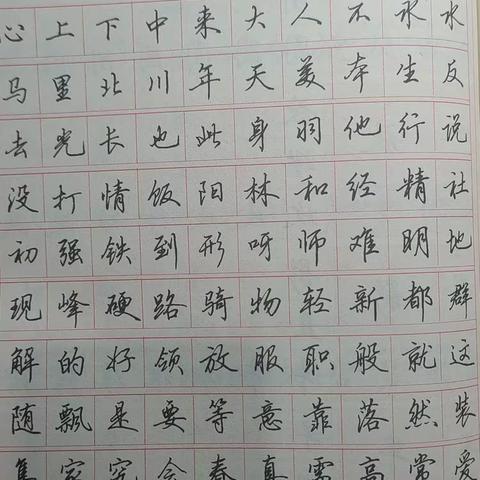 心上下中来大人不永水
马里北川年天美本生反
去光长也此身羽他行说
没打情饭阳林和经精社
初强铁到形呀师难明地
现峰硬路骑物轻新都群
解的好领放服职般就这
随飘是要等意靠落然装
集家究会春真需高常爱